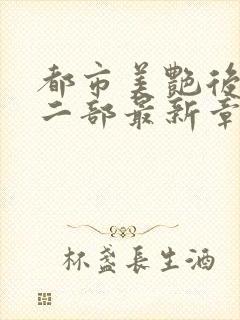 都市美艷後
二部最新章
杯盞長生酒